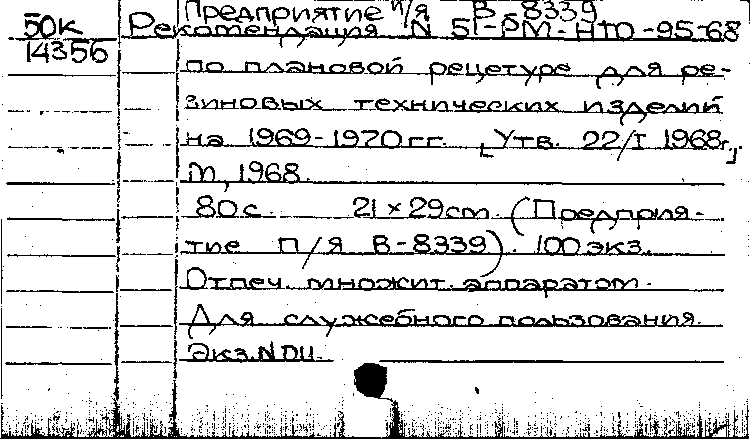 Предприятие п/я В-8339
50к
14356
Рекомендация N 51-РМ-НТО-95-68
по плановой рецетуре для ре-
зиновых технических изделий
на 1969-1970гг. [Утв. 22/I 1968г.]
М., 1968.
80с. 21×29cm. (Предприя-
тие п/я В-8339). 100 экз.
Отпеч. множит. аппаратом.
Для служебного пользования.
Экз.N